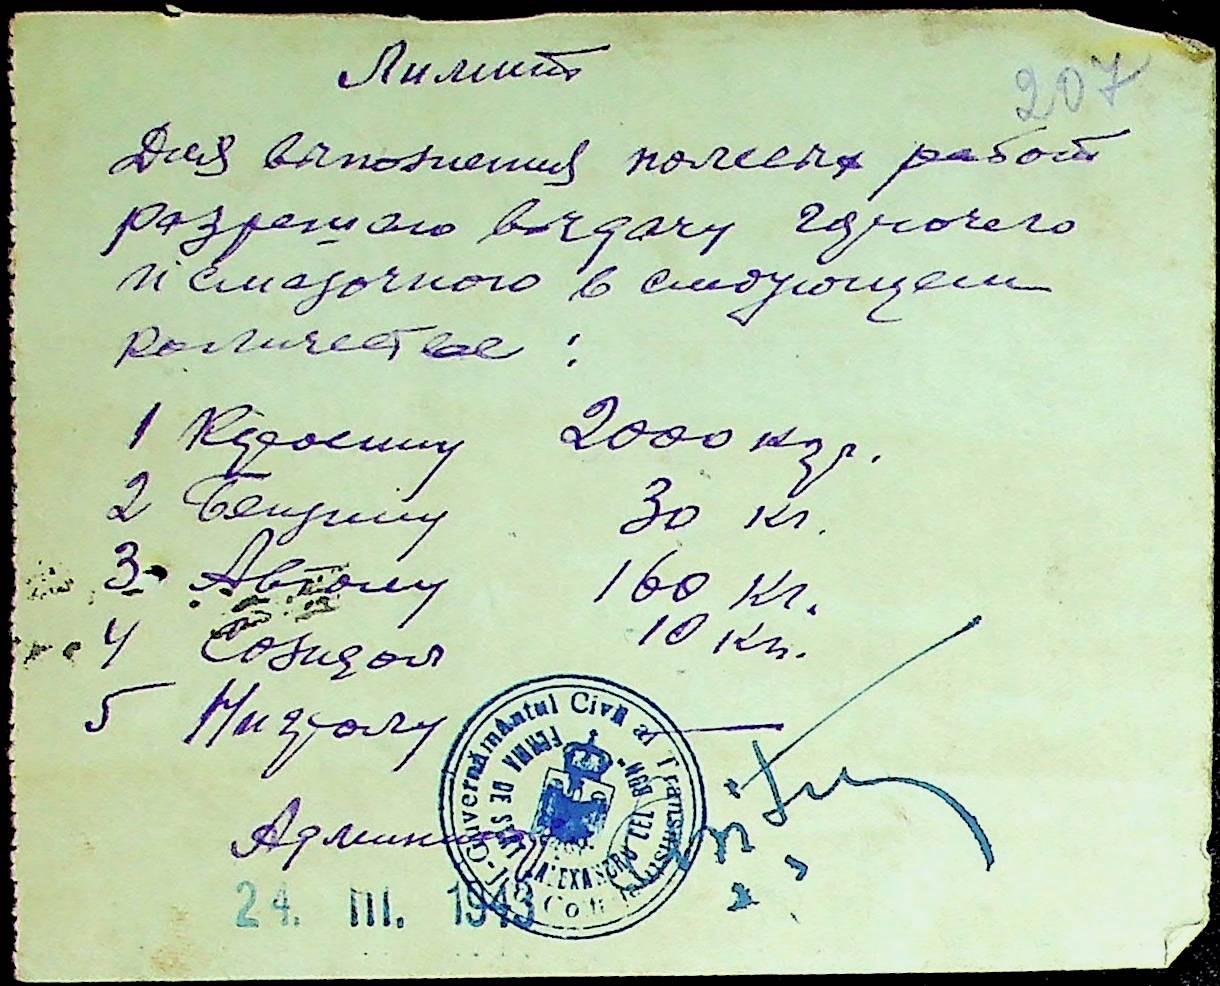 Лимит
207
Для выполнения полевых работ
разрешаю выдачу горючего
и смазочного в следующем
количестве :
1 Керосину 2000 кгр.
2 Бензину 30 кг.
3 Автолу 160 кг.
4 Солидол 10 кг.
5 Нигролу —
Админи
24. III. 1943
Guvernământul Civil al Transnistriei
FERMA DE STAT
"ALEXANDRU CEL BUN"